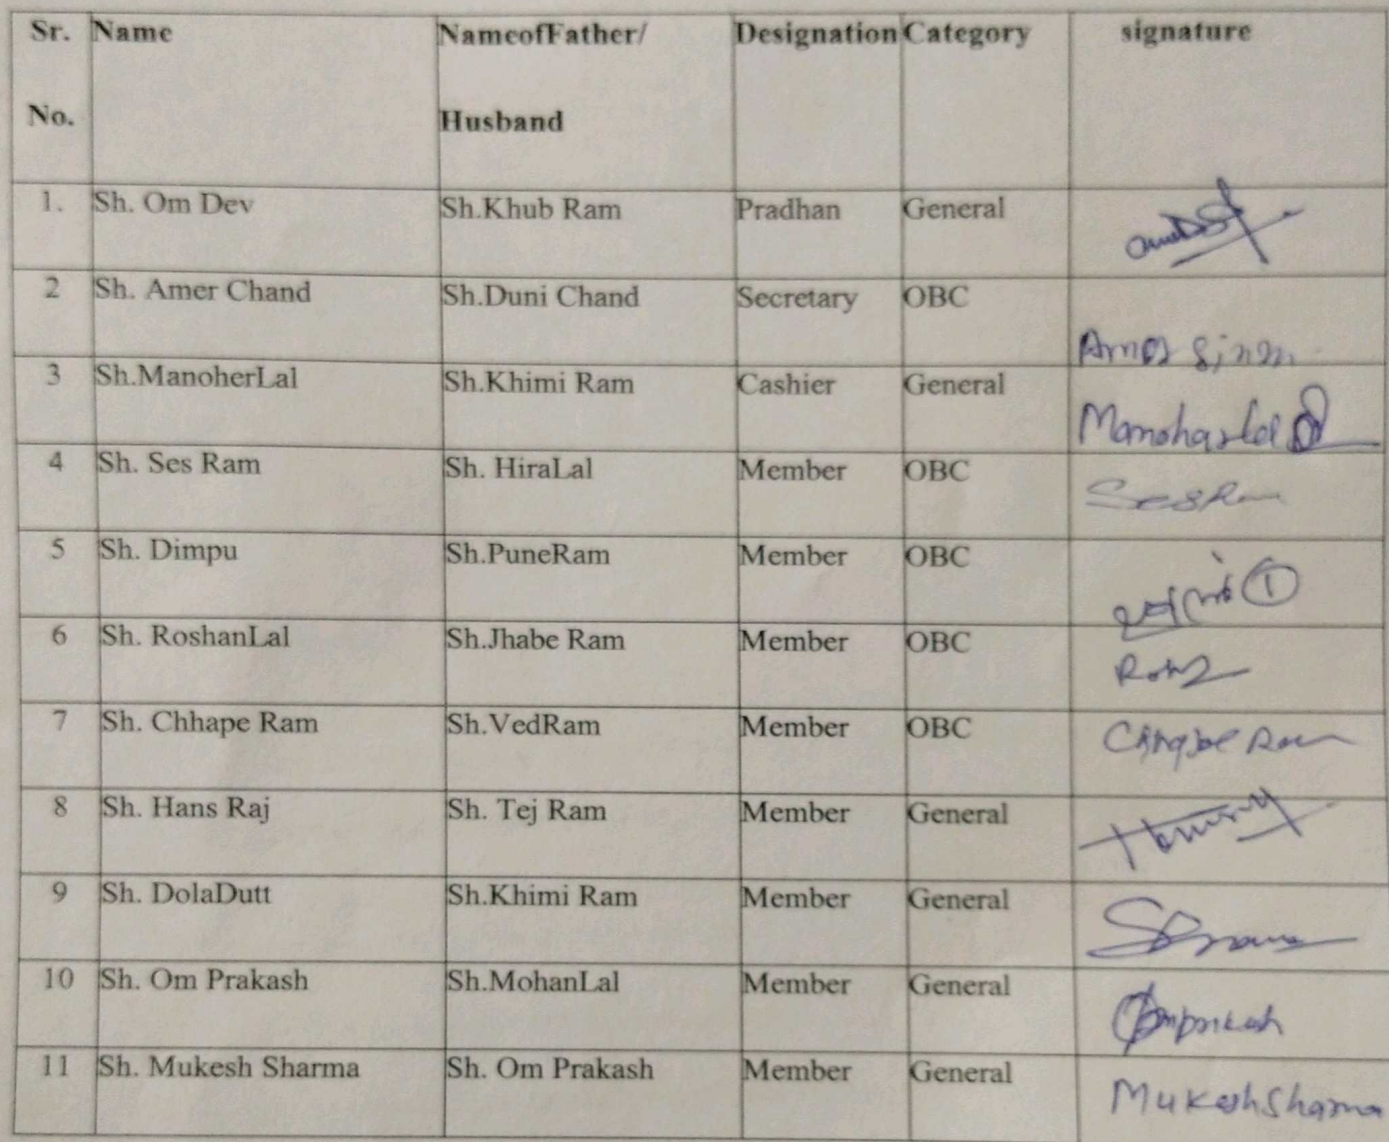 Sr. Name NameofFather/ Designation Category signature
No. Husband
1. Sh. Om Dev Sh.Khub Ram Pradhan General
2 Sh. Amer Chand Sh.Duni Chand Secretary OBC
3 Sh.ManoherLal Sh.Khimi Ram Cashier General Manoharlal
4 Sh. Ses Ram Sh. HiraLal Member OBC SesRam
5 Sh. Dimpu Sh.PuneRam Member OBC
6 Sh. RoshanLal Sh.Jhabe Ram Member OBC
7 Sh. Chhape Ram Sh.VedRam Member OBC
8 Sh. Hans Raj Sh. Tej Ram Member General
9 Sh. DolaDutt Sh.Khimi Ram Member General
10 Sh. Om Prakash Sh.MohanLal Member General
11 Sh. Mukesh Sharma Sh. Om Prakash Member General Mukesh Sharma